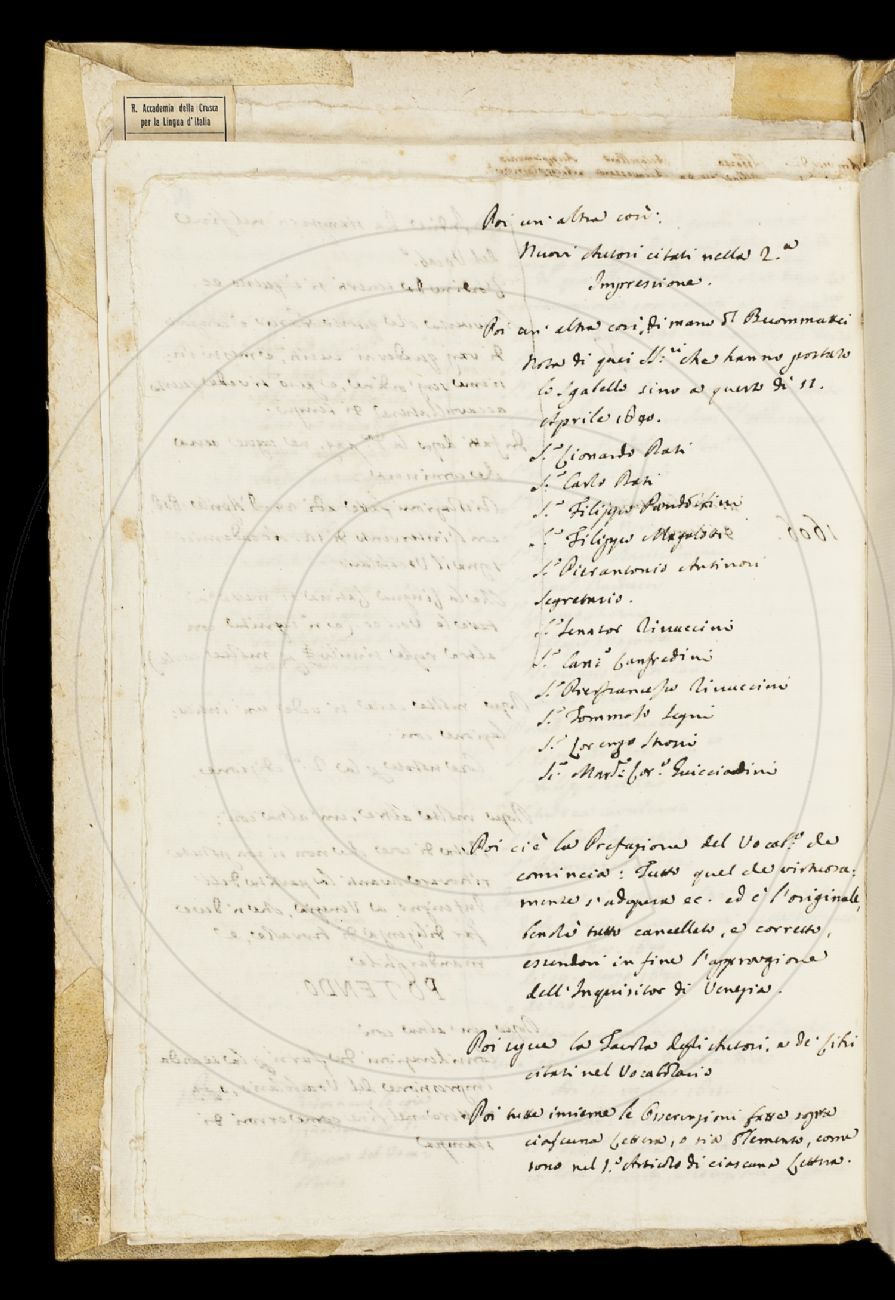 R. Accademia della Crusca
per la Lingua d'Italia
Poi un' altra così:
Nuovi Autori citati nella 2.a
Impressione.
Poi un' altra così, di mano di Buommattei
Nota di quei SS.ri che hanno portato
lo Sgabello sino a questo dì 11.
Aprile 1640.
S.r Lionardo Dati
S.r Carlo Dati
S.r Filippo Pandolfini
S.r Filippo Magalotti
S.r Pierantonio Antinori
Segretario.
S.r Senator Rinuccini
S.r Can.co Lanfredini
S.r Pierfrancesco Rinuccini
S.r Tommaso Segni
S.r Lorenzo Strozzi
S.r March.e Lor.o Guicciardini
Poi ci è la Prefazione del Vocab.o che
comincia: Tutto quel che virtuosa-
mente s'adopera ec. ed è l'originale,
tutto cancellato, e corretto,
essendovi in fine l'approvazione
dell' Inquisitor di Venezia.
Poi segue la Tavola degli Autori, e de' Libri
citati nel Vocabolario
Poi tutte insieme le Osservazioni fatte sopra
ciascuna Lettera, o sia Elemento, come
sono nel 1.o Articolo di ciascuna Lettera.